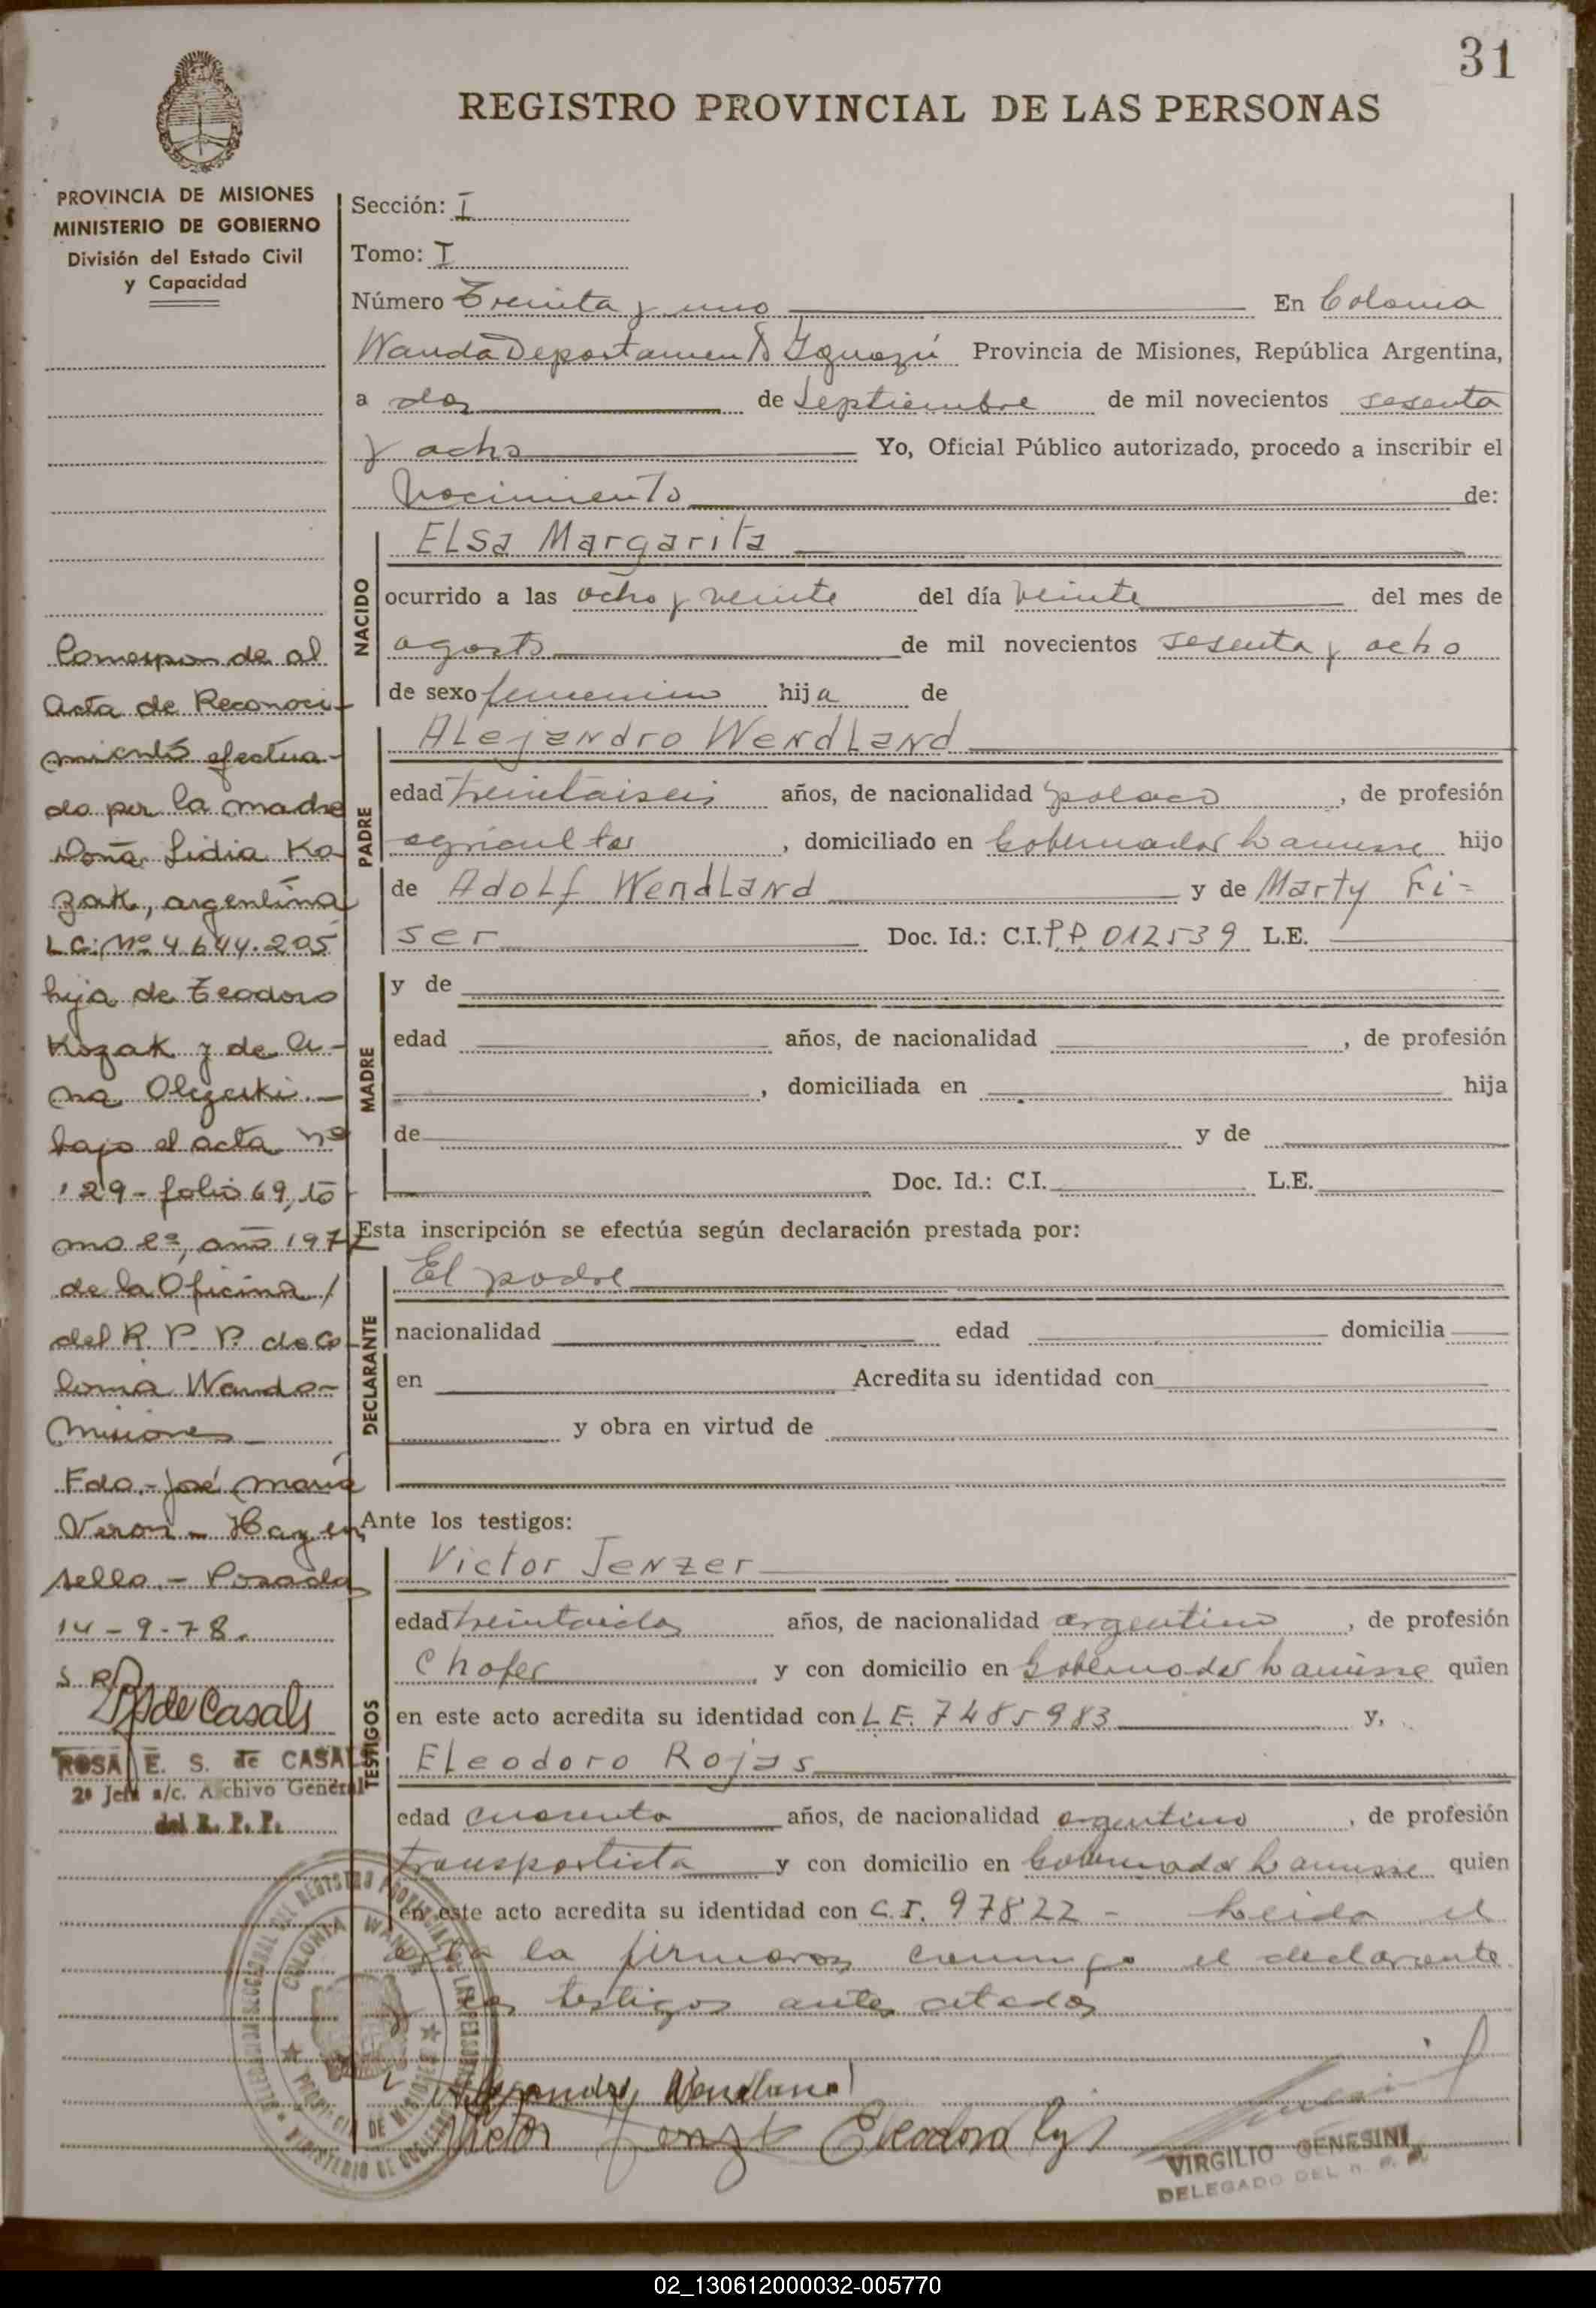 31
REGISTRO PROVINCIAL DE LAS PERSONAS
PROVINCIA DE MISIONES
MINISTERIO DE GOBIERNO
División del Estado Civil
y Capacidad
Sección: I
Tomo: I
Número Treinta y uno En Colonia
Wanda Departamento Iguazú Provincia de Misiones, República Argentina,
a dos de Septiembre de mil novecientos sesenta
y ocho Yo, Oficial Público autorizado, procedo a inscribir el
Nacimiento de:
NACIDO
Elsa Margarita
ocurrido a las ocho y veinte del día veinte del mes de
agosto de mil novecientos sesenta y ocho
de sexo femenino hija de
PADRE
Alejandro Wendland
edad treintaiseis años, de nacionalidad polaco, de profesión
agricultor, domiciliado en Gobernador Lanusse hijo
de Adolf Wendland y de Marty Fi-
ser Doc. Id.: C.I. P.P. 012539 L.E.
MADRE
y de
edad años, de nacionalidad , de profesión
, domiciliada en hija
de y de
Doc. Id.: C.I. L.E.
Esta inscripción se efectúa según declaración prestada por:
DECLARANTE
El padre
nacionalidad edad domicilia
en Acredita su identidad con
y obra en virtud de
Ante los testigos:
TESTIGOS
Victor Jenzer
edad treintaidos años, de nacionalidad argentino, de profesión
Chofer y con domicilio en Gobernador Lanusse quien
en este acto acredita su identidad con L.E. 7485983 y,
Eleodoro Rojas
edad cuarenta años, de nacionalidad argentino, de profesión
transportista y con domicilio en Gobernador Lanusse quien
en este acto acredita su identidad con C.I. 97822 - Leida el
acta la firmaron conmigo el declarante
y los testigos antes citados
Alejandro Wendland
Victor Jenzer Eleodoro Rojas
VIRGILIO GENESINI
DELEGADO DEL R. P. P.
Corresponde al
Acta de Reconoci-
miento efectua-
do por la madre
Doña Lidia Ko
zak, argentina
L.C: Nº 4.644.205
hija de Teodoro
Kozak y de A-
na Olczeski.-
bajo el acta nº
129- folio 69, to
mo 2º, año 197
de la Oficina /
del R. P. P. de Co
lonia Wanda-
Misiones
Fdo.- José María
Veron - Hay un
sello.- Posadas
14-9-78.
S. R.
RS de Casals
ROSA E. S. de CASALS
2º Jefa a/c. Archivo General
del R. P. P.
COLONIA WANDA
PROVINCIA DE MISIONES
02_130612000032-005770